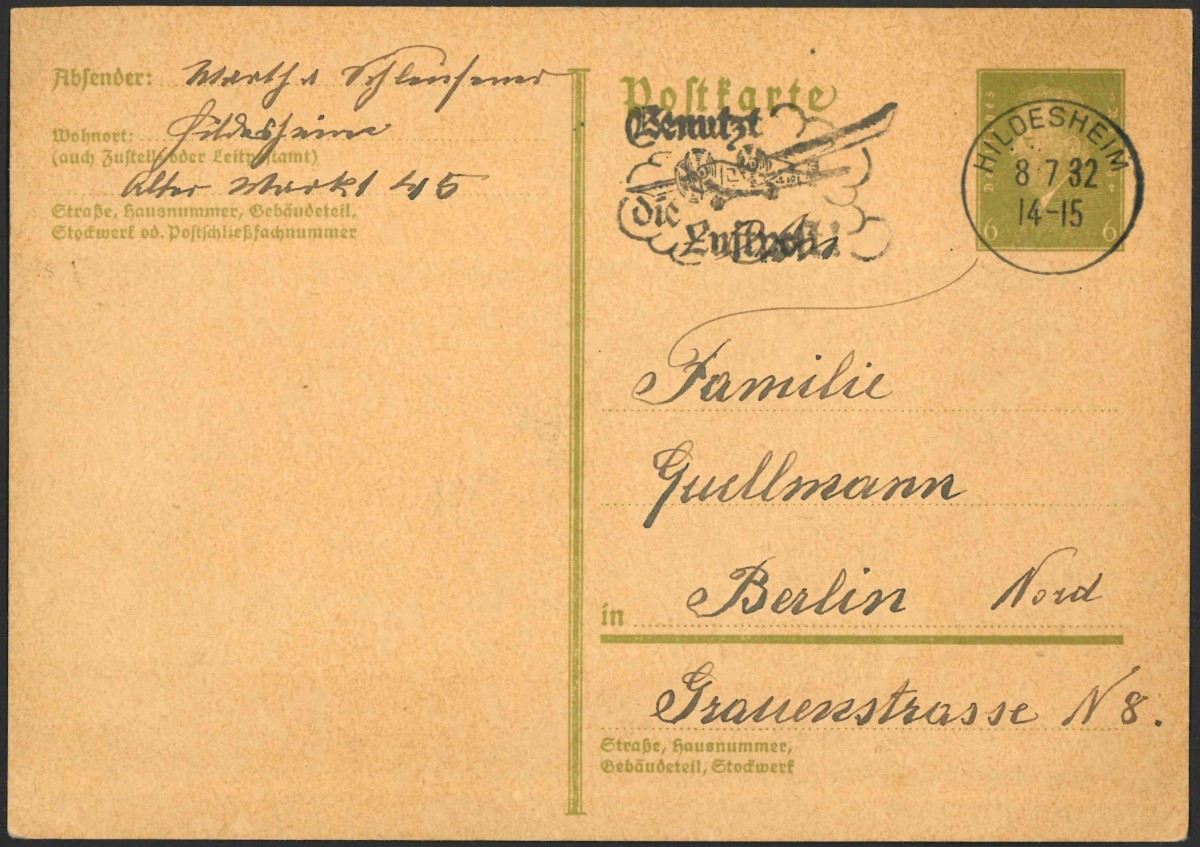 Absender: Schleusener
Wohnort: Hildesheim
(auch Zustell- oder Leitpostamt)
Alter Markt 45
Straße, Hausnummer, Gebäudeteil,
Stockwerk od. Postschließfachnummer
Postkarte
Benutzt
die
Luftpost!
HILDESHEIM
8 7 32
14-15
6 6
Familie
Quellmann
in Berlin Nord
Grauenstrasse N 8.
Straße, Hausnummer,
Gebäudeteil, Stockwerk